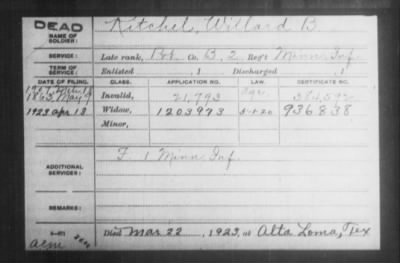 DEAD
NAME OF SOLDIER: Kitchel, Willard B
SERVICE: Late rank, Pvt Co. B, 2 Reg't Minn. Inf.
TERM OF SERVICE: Enlisted , 1 Discharged , 1
DATE OF FILING. CLASS. APPLICATION NO. LAW. CERTIFICATE NO.
1863 May 9 Invalid, 21,793
1923 Apr 13 Widow, 1203973 5-1-20 936838
Minor,
ADDITIONAL SERVICES: F. 1 Minn. Inf.
REMARKS:
Died Mar 22, 1923, at Alta Loma, Tex
acm